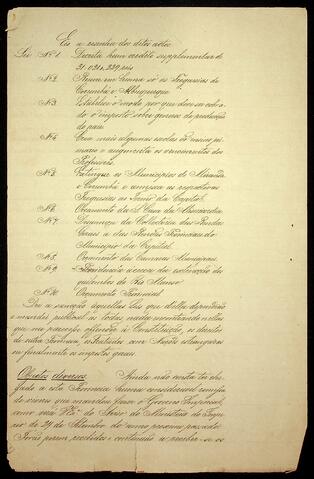 Eis a resenha dos ditos actos.
Lei Nº 1. Decreta hum credito supplementar de
21:021,239 reis
Nº 2. Reune em huma só as Freguesias de
Corumbá e Albuquerque
Nº 3. Estabelece o modo por que deve ser cobra-
do o imposto sobre generos de producção
do paiz
Nº 4. Crea mais algumas escolas de ensino pri-
mario e augmenta os vencimentos dos
Professores.
Extingue os Municipios de Miranda
e Corumbá e annexa as respectivas
Freguesias ao Termo da Capital.
Nº 6. Orçamento da Sta Casa da Misericordia
Nº 7. da Collectoria das Rendas
Geraes a das Rendas Provinciaes do
Municipio da Capital.
Orçamento das Camaras Municipaes.
Nº 9. Providencia acerca da extincção dos
quilombos do Rio Manso
Nº 10. Orçamento Provincial
Dei a sancção áquellas Leis que della dependião
e mandei publical-as todas, nada encontrando nellas
que me parecesse offensivo á Constituição, os direitos
de outra Provincia, os tratados com Nações estrangeiras
ou finalmente os impostos geraes.
Objectos diversos. Ainda não consta ter che-
gado a esta Provincia huma consideravel remessa
de viveres que mandou fazer o Governo Imperial,
como verá V. Exª do Aviso do Ministerio da Guer-
ra de 24 de Setembro do anno proximo passado.
Terão porem recebidos e continuão a receber-se os